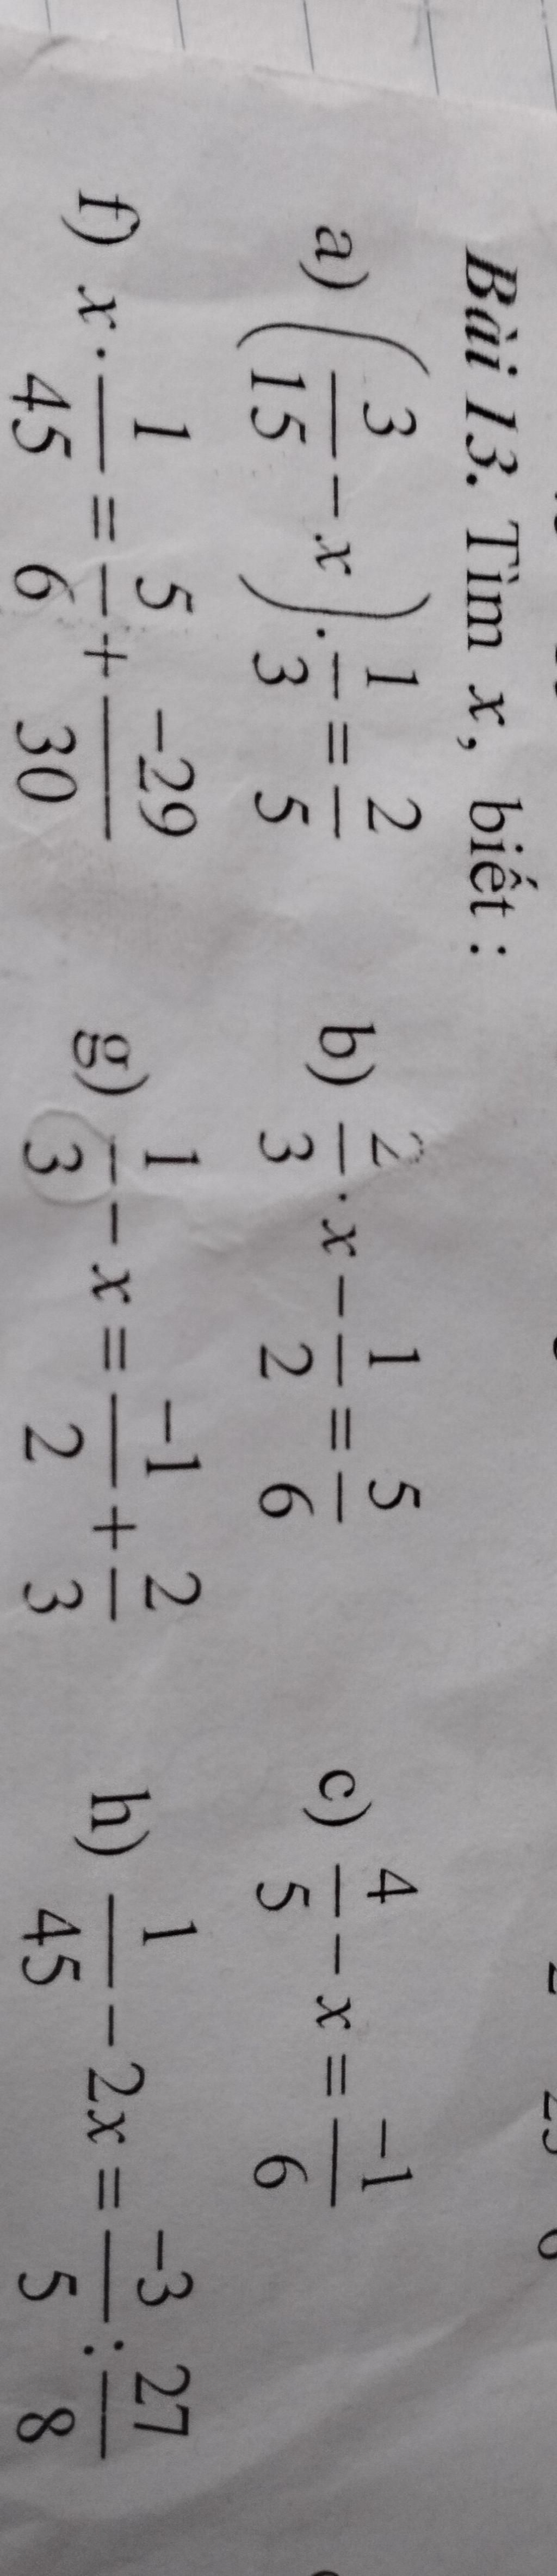 Bài 13. Tìm x, biết :
a) (3/15 - x) · 1/3 = 2/5    b) 2/3 · x - 1/2 = 5/6    c) 4/5 - x = -1/6
f) x · 1/45 = 5/6 + -29/30    g) 1/3 - x = -1/2 + 2/3    h) 1/45 - 2x = -3/5 : 27/8